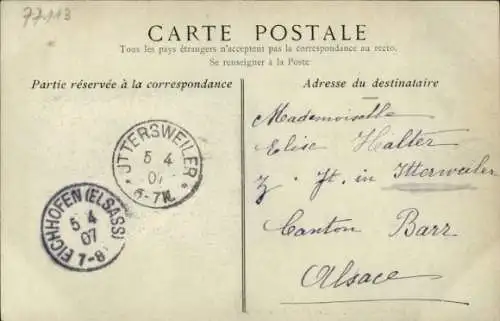 77113
CARTE POSTALE
Tous les pays étrangers n'acceptent pas la correspondance au recto.
Se renseigner à la Poste
Partie réservée à la correspondance
Adresse du destinataire
JTTERSWEILER
5 4
07
6-7N.
EICHHOFEN (ELSASS)
5 4
07
7-8
Mademoiselle
Elise Halter
z. Zt. in Itterweiler
Canton Barr
Alsace